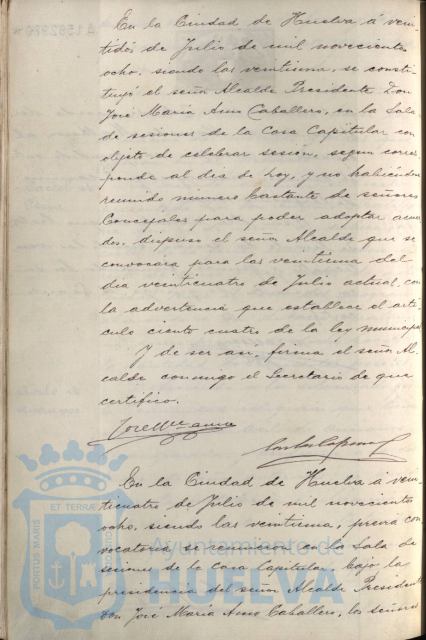 En la Ciudad de Huelva á vein
tidós de Julio de mil novecientos
ocho, siendo las veintiuna, se consti
tuyó el señor Alcalde Presidente Don
José María Amo Caballero, en la Sala
de sesiones de la Casa Capitular con
objeto de celebrar sesión, segun corres
ponde al dia de hoy, y no habiéndose
reunido número bastante de señores
Concejales para poder adoptar acuer
dos, dispuso el señor Alcalde que se
convocára para las veintiuna del
dia veinticuatro de Julio actual, con
la advertencia que establece el artí
culo ciento cuatro de la ley municipal
Y de ser asi, firma el señor Al
calde conmigo el Secretario de que
certifico.
José Mª Amo
En la Ciudad de Huelva á vein
ticuatro de Julio de mil novecientos
ocho, siendo las veintiuna, prévia con
vocatoria se reunieron en la Sala de
sesiones de la Casa Capitular, bajo la
presidencia del señor Alcalde Presidente
Don José María Amo Caballero, los señores
PORTUS MARIS ET TERRÆ
Ayuntamiento de
HUELVA